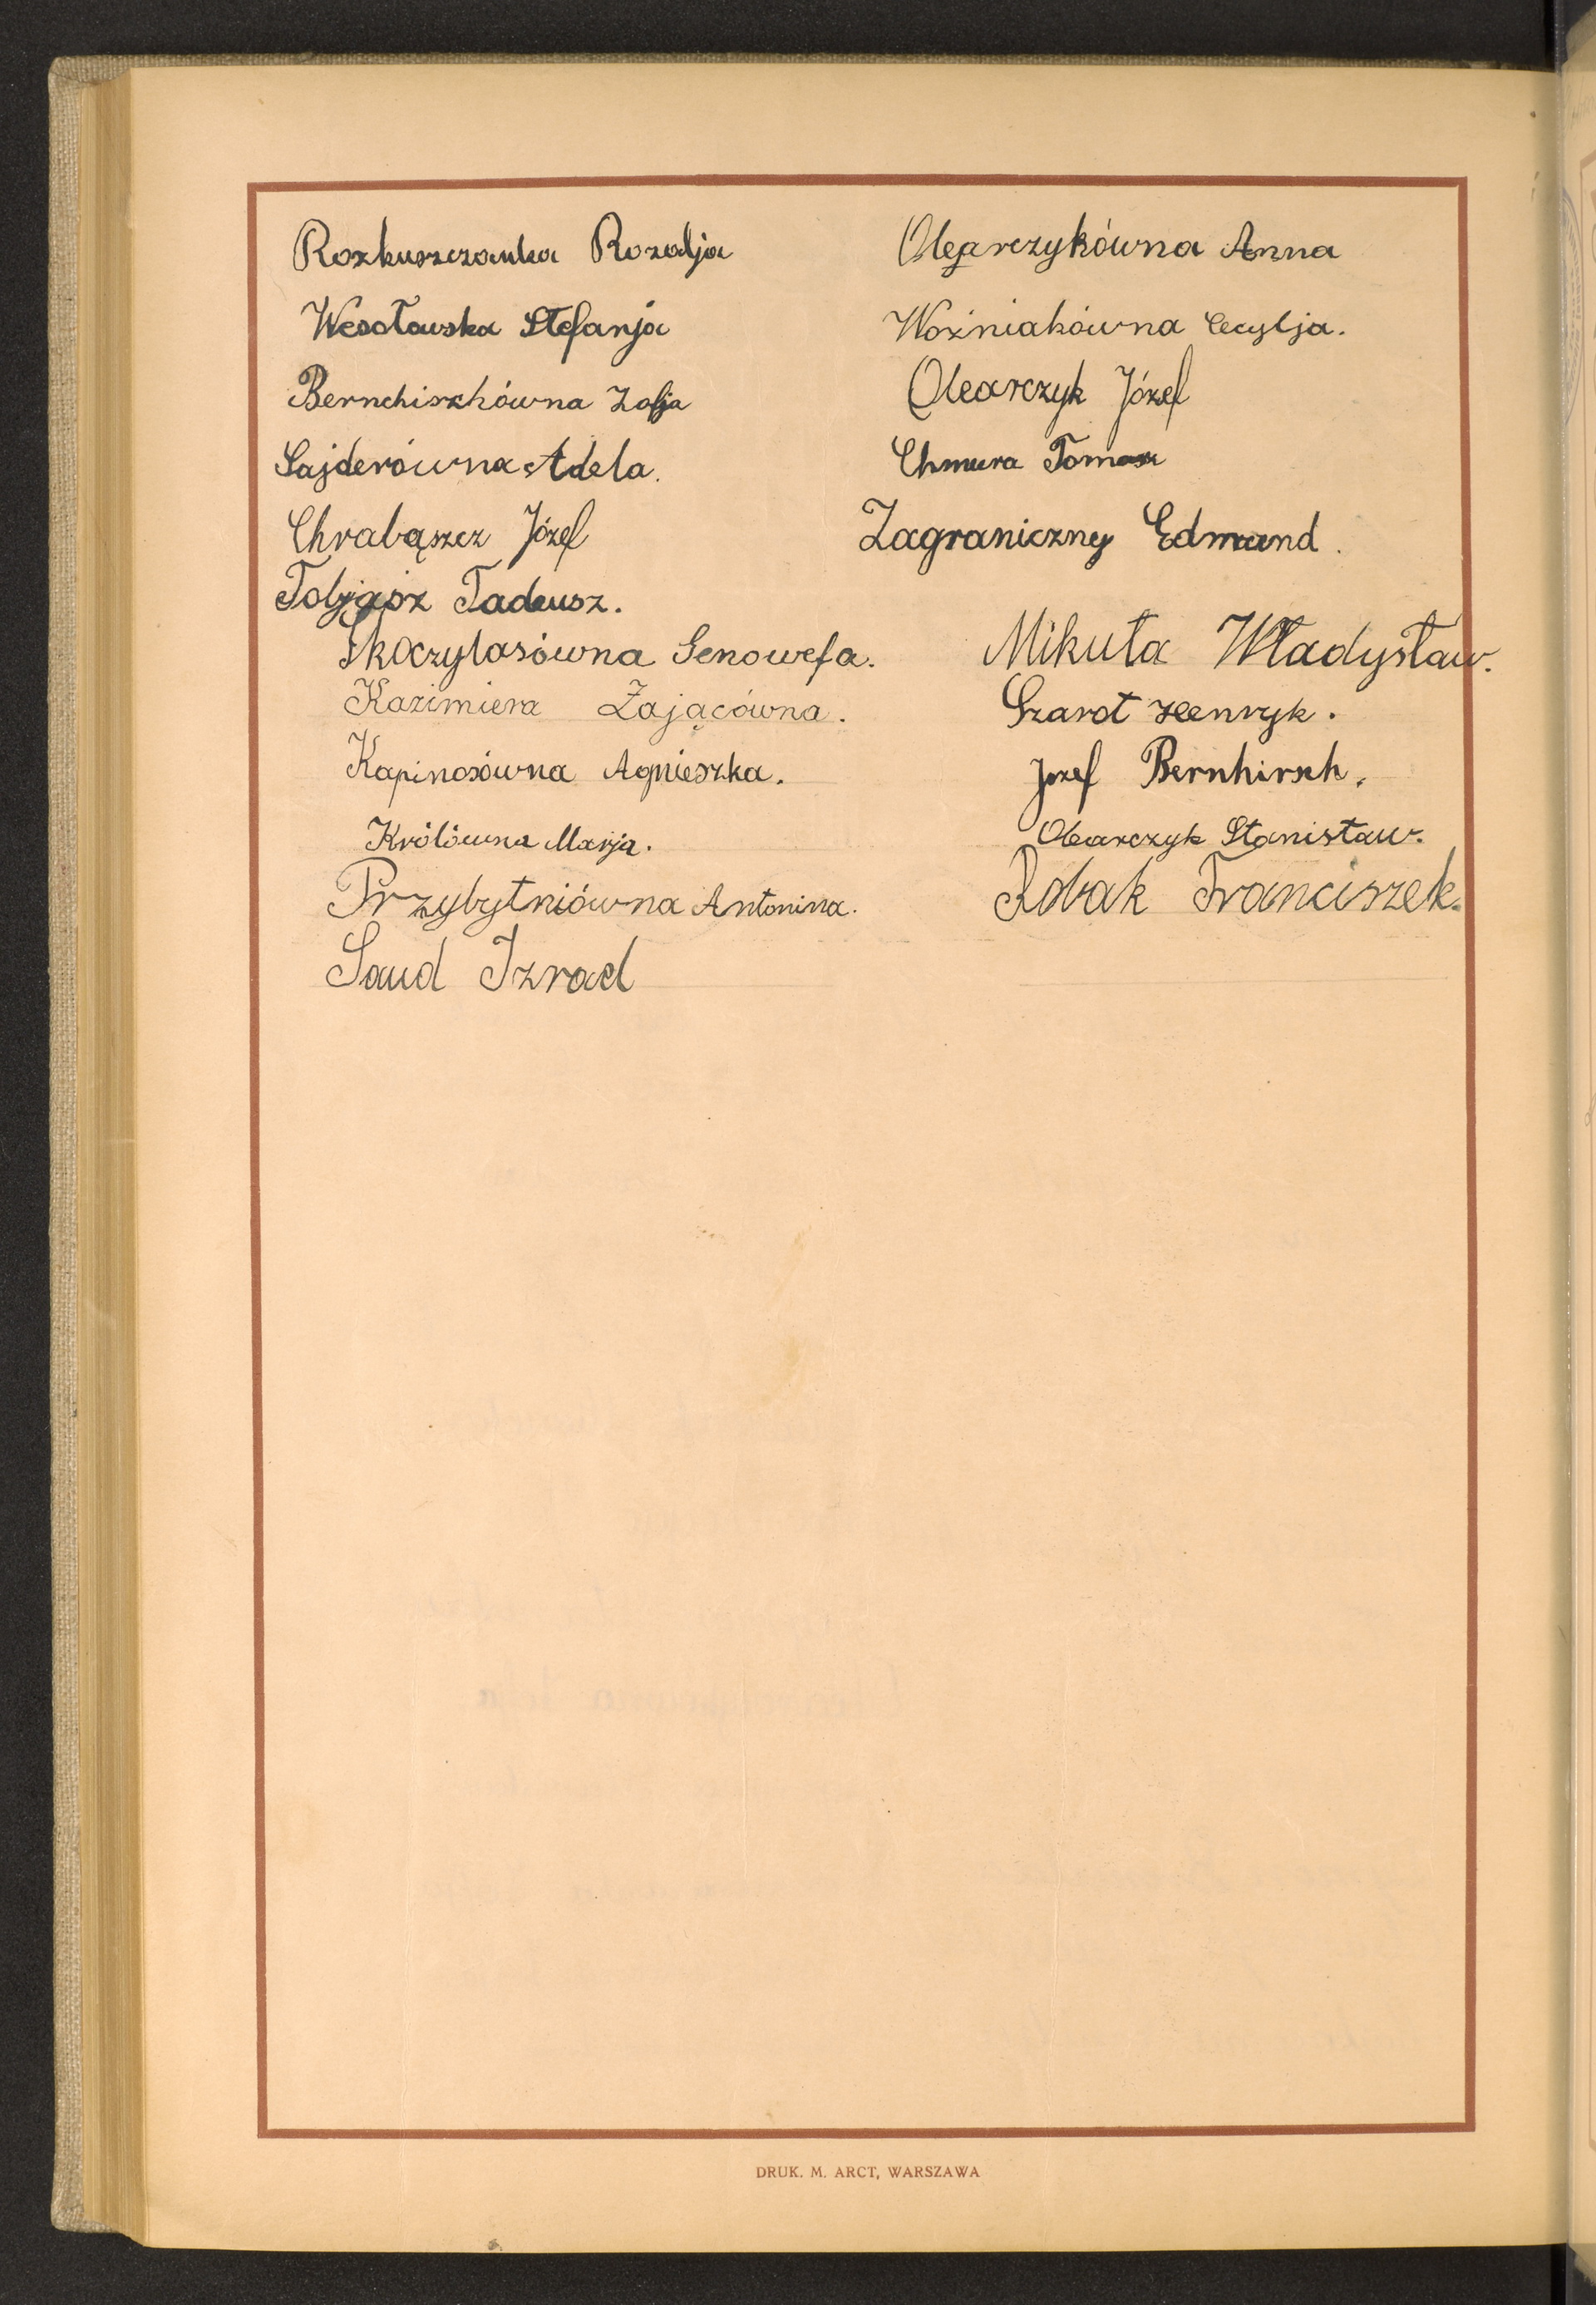 Rozkuszczanka Rozalja
Wesołowska Stefanja
Bernchirschówna Zofja
Sajderówna Adela.
Chrabąszcz Józef
Tobjasz Tadeusz.
Skoczylasówna Genowefa.
Kazimiera Zającówna.
Kapinosówna Agnieszka.
Królówna Marja.
Przybytniówna Antonina.
Saud Izrael
Olearczykówna Anna
Woźniakówna Cecylja.
Olearczyk Józef
Chmura Tomasz
Zagraniczny Edmund.
Mikuła Władysław.
Szarot Henryk.
Józef Bernhirsch.
Olearczyk Stanisław.
Robak Franciszek.
DRUK. M. ARCT, WARSZAWA